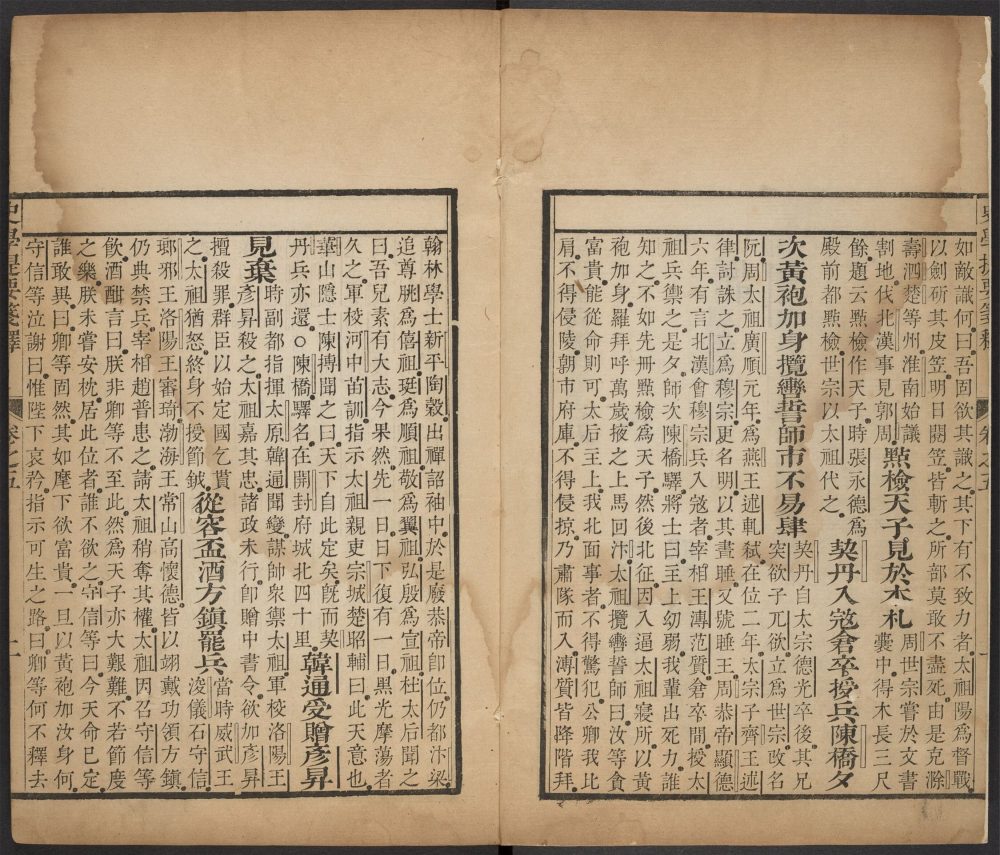 史學提要箋釋
卷之五
如敵識何曰吾固欲其識之其下有不致力者太祖陽為督戰
以劍斫其皮笠明日閱笠皆斬之所部莫敢不盡死由是克滁
壽泗楚等州淮南始議
割地伐北漢事見郭周點檢天子見於木札周世宗嘗於文書
囊中得木長三尺
餘題云點檢作天子時張永德為
殿前都點檢世宗以太祖代之契丹入寇倉卒授兵陳橋夕
次黃袍加身攬轡誓師市不易肆契丹自太宗德光卒後其兄
突欲子兀欲立為世宗改名
阮周太祖廣順元年為燕王述軋弒在位二年太宗子齊王述
律討誅之立為穆宗更名明以其晝睡又號睡王周恭帝顯德
六年有言北漢會穆宗兵入寇者宰相王溥范質倉卒間授太
祖兵禦之是夕師次陳橋驛將士曰主上幼弱我輩出死力誰
知之不如先冊點檢為天子然後北征因入逼太祖寢所以黃
袍加身羅拜呼萬歲掖之上馬回汴太祖攬轡誓師曰汝等貪
富貴能從命則可太后主上我北面事者不得驚犯公卿我比
肩不得侵陵朝市府庫不得侵掠乃肅隊而入溥質皆降階拜
翰林學士新平陶穀出禪詔袖中於是廢恭帝卽位仍都汴梁
追尊朓為僖祖珽為順祖敬為翼祖弘殷為宣祖杜太后聞之
曰吾兒素有大志今果然先一日日下復有一日黑光摩蕩者
久之軍校河中苗訓指示太祖親吏宗城楚昭輔曰此天意也
華山隱士陳摶聞之曰天下自此定矣旣而契
丹兵亦還○陳橋驛名在開封府城北四十里韓通受贈彥昇
見棄時副都指揮太原韓通聞變謀帥衆禦太祖軍校洛陽王
彥昇殺之太祖嘉其忠諸政未行卽贈中書令欲加彥昇
擅殺罪群臣以始定國乞貰
之太祖猶怒終身不授節鉞從容盃酒方鎮罷兵當時威武王
浚儀石守信
瑯邪王洛陽王審琦渤海王常山高懷德皆以翊戴功領方鎮
仍典禁兵宰相趙普患之請太祖稍奪其權太祖因召守信等
飲酒酣言曰朕非卿等不至此然為天子亦大艱難不若節度
之樂朕未嘗安枕居此位者誰不欲之守信等曰今天命已定
誰敢異曰卿等固然其如麾下欲富貴一旦以黃袍加汝身何
守信等泣謝曰惟陛下哀矜指示可生之路曰卿等何不釋去
史學提要箋釋
卷之五